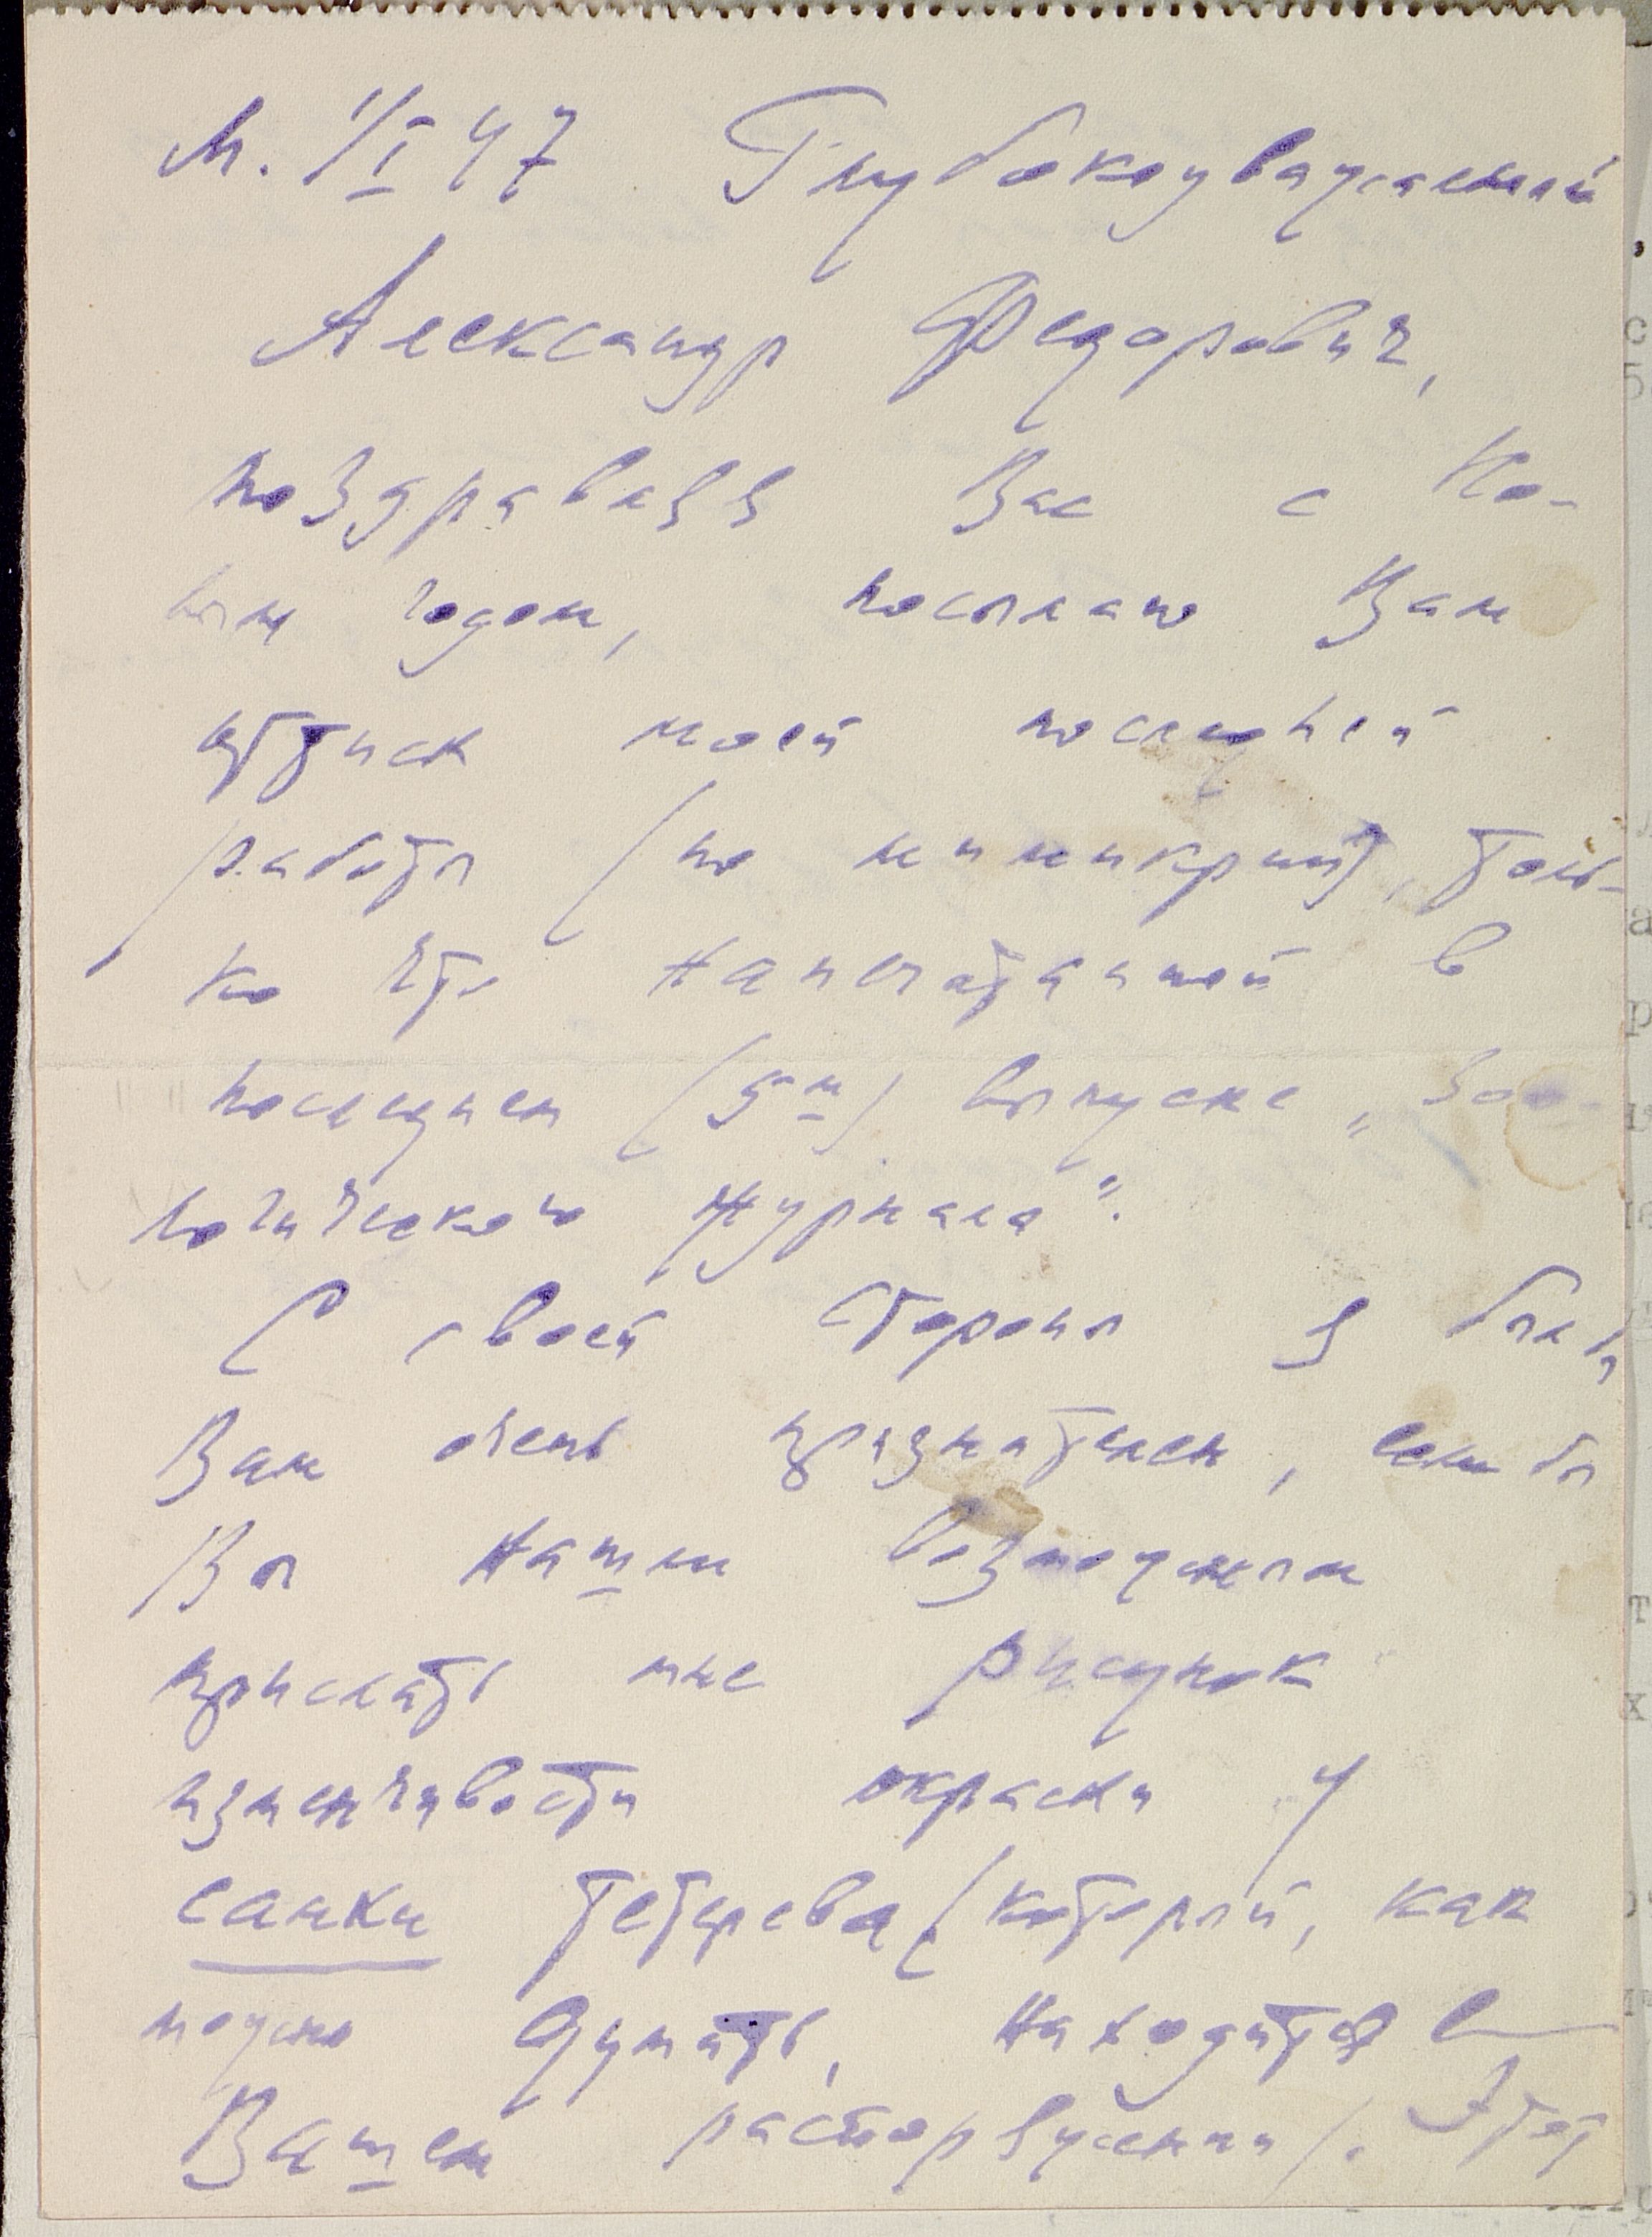 М. 1/I 47 Глубокоуважаемый
Александр Федорович,
поздравляя Вас с Но-
вым годом, посылаю Вам
оттиск моей последней
работы (по мимикрии, толь-
ко что напечатанной в
последнем (5м) выпуске „Зоо-
логического Журнала".
С своей стороны я был б
Вам очень признателен, если бы
Вы нашли возможным
прислать мне рисунок
изменчивости окраски у
самки тетерева (который, как
можно думать, находится в
Вашем распоряжении). Этот